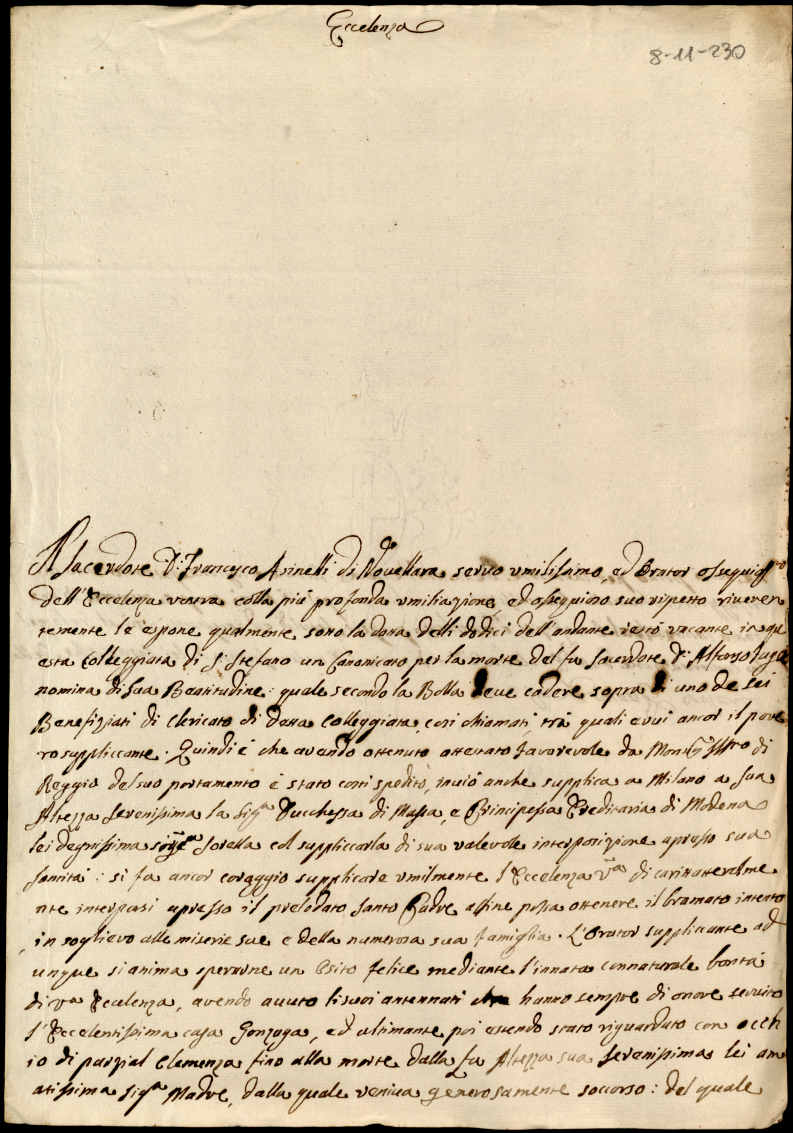 Eccelenza
8-11-230
Il Sacerdote D: Francesco Asinelli di Novellara servo umilissimo, ed Orator ossequiosso
dell'Eccelenza vostra colla più profonda umiliazione, ed ossequioso suo rispetto riveren
temente le espone qualmente sotto la data delli dodici dell'andante restò vacante in qu
esta Colleggiata di S: Stefano un Canonicato per la morte del fu Sacerdote D: Alfonso
nomina di Sua Beatitudine: quale secondo la Bolla deve cadere sopra di uno de sei
Benefiziati di Clericato di data Colleggiata, cosi chiamati, trà quali evvi ancor il pove
ro suppliccante. Quindi è che avendo ottenuto attestato favorevole da Monsig.r di
Reggio del suo portamento è stato costì spedito, inviò anche supplica a Milano a sua
Altezza Serenissima la Sig.ra Duchessa di Massa, e Principessa Ereditaria di Modena
lei degnissima Sorella col suppliccarla di sua valevole interposizione apresso sua
Santità: si fa ancor coraggio supplicare umilmente l'Eccelenza V.a di
nte interporsi apresso il prelodato Santo Padre affine possa ottenere il bramato intento
in soglievo alle miserie sue e della numerosa sua famiglia. L'Orator supplicante ad
unque si anima sperarne un Esito felice mediante l'innata connaturale bontà
di v.a Eccelenza, avendo avuto li suoi antennati hanno sempre di onore servito
l'Eccelentissima casa Gonzaga, ed ultimante poi essendo stato riguardato con occh
io di parzial Clemenza fino alla morte dalla fu Altezza sua Serenissima lei am
atissima Sig.ra Madre, dalla quale veniva generosamente soccorso: del quale